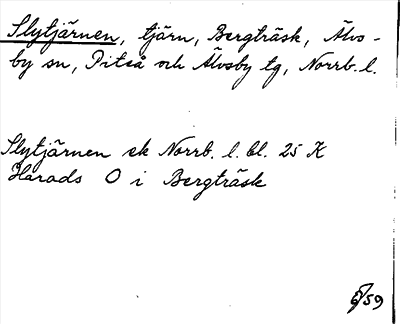 Slytjärnen, tjärn, Bergträsk, Älvs-
by sn, Piteå och Älvsby tg, Norrb. l.
Slytjärnen ek Norrb. l. bl. 25 K
Harads O i Bergträsk
6/59